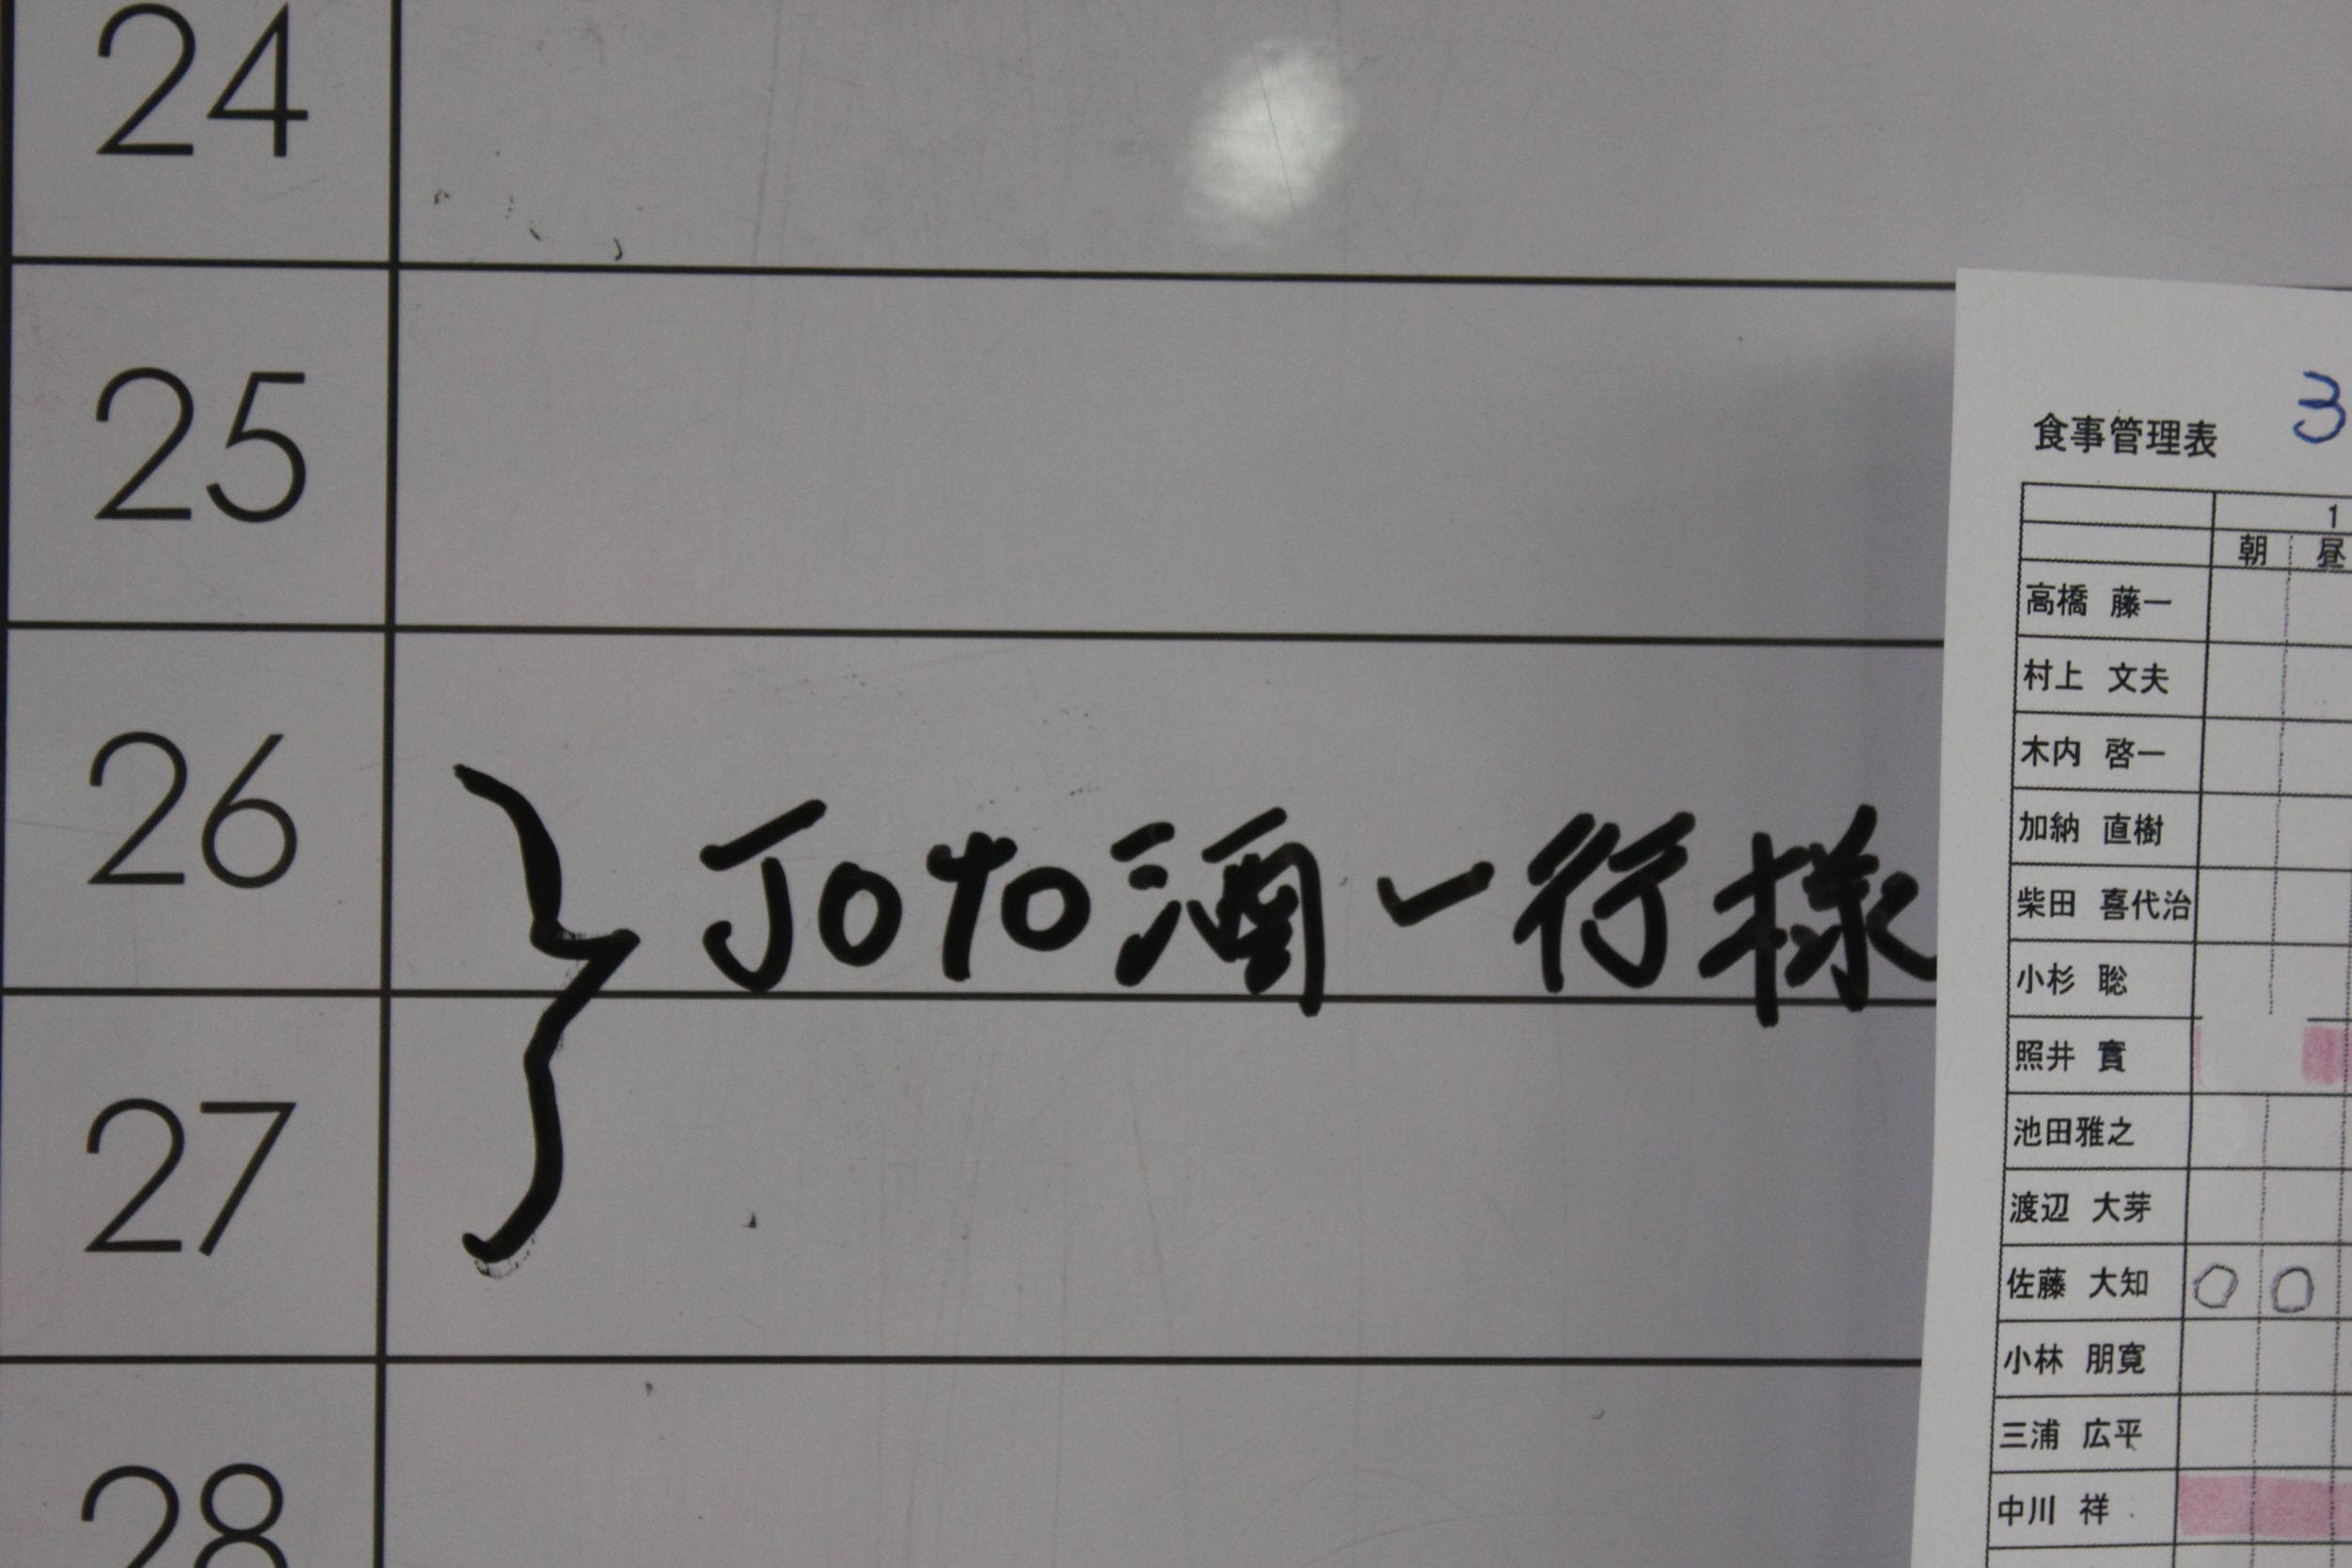 24
25
26
27
28
Joto酒一行様
食事管理表 3
1
朝 昼
高橋 藤一
村上 文夫
木内 啓一
加納 直樹
柴田 喜代治
小杉 聡
照井 實
池田雅之
渡辺 大芽
佐藤 大知 ○ ○
小林 朋寛
三浦 広平
中川 祥